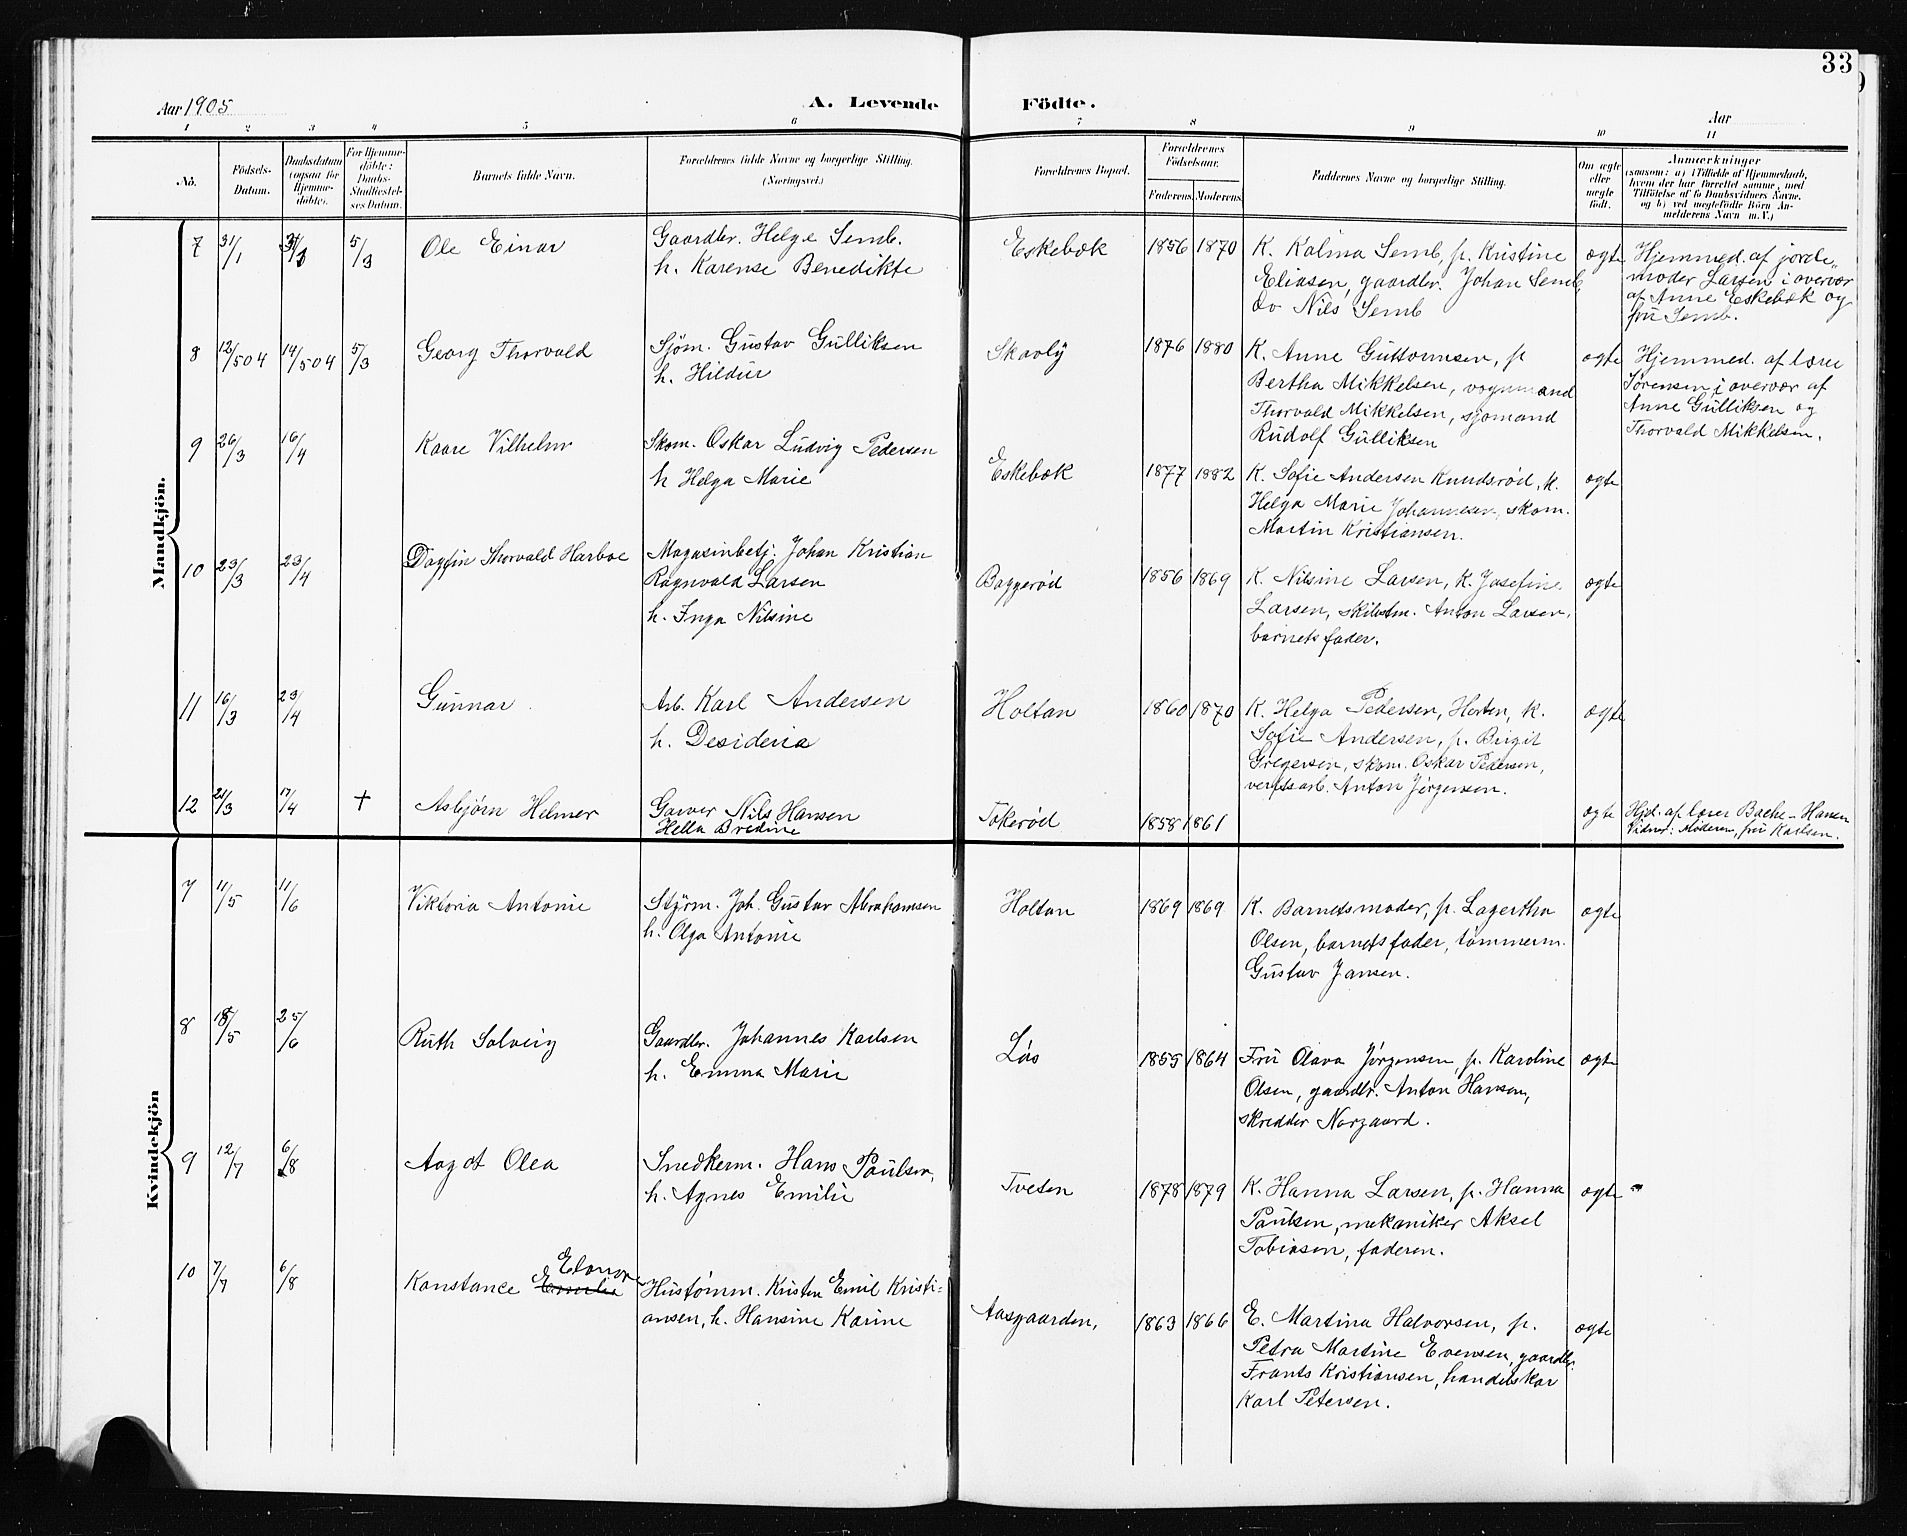 33
Aar 1905
A. Levende Födte.
Aar
1 2 3 4 5 6 7 8 9 10 11
No.
Födsels-
Datum.
Daabsdatum
(ogsaa for
Hjemme-
döbte).
For Hjemme-
döbte:
Daabs-
Stadfæstel-
ses Datum.
Barnets fulde Navn.
Forældrenes fulde Navne og borgerlige Stilling.
(Næringsvei.)
Forældrenes Bopæl.
Forældrenes
Födselsaar.
Faderens. Moderens.
Faddernes Navne og borgerlige Stilling.
Om ægte
eller
uegte
födt.
Anmærkninger
(saasom: a) i Tilfælde af Hjemmedaab,
hvem der har forrettet samme, med
Tilföielse af to Daabsvidners Navne.
og b) ved uegtefödte Börn An-
melderens Navn m. V.)
Mandkjön.
7 31/1 5/3 Ole Einar
Gaardbr. Helge Semb.
h. Karense Benedikte
Eskebæk 1856 1870
K. Kalma Semb, p. Kristine
Eliasen, gaardbr. Johan Semb,
do Nils Semb
ægte
Hjemmed. af jorde-
moder Larsen i overvær
af Anne Eskebæk og
fru Semb.
8 12/5 04 14/5 04 5/3 Georg Thorvald
Sjøm. Gustav Gulliksen
h. Hildur
Skavly 1876 1880
K. Anne Guttormsen, p
Bertha Mikkelsen, vognmand
Thorvald Mikkelsen, sjømand
Rudolf Gulliksen
ægte
Hjemmed. af lærer
Sørensen i overvær af
Anne Gulliksen og
Thorvald Mikkelsen.
9 26/3 16/4 Kaare Vilhelm
Skom. Oskar Ludvig Pedersen
h Helga Marie
Eskebæk 1877 1882
K. Sofie Andersen Knudsrød, k.
Helga Marie Johannesen, skom.
Martin Kristiansen.
ægte
10 23/3 23/4 Dagfin Thorvald Harboe
Magasinbetj. Johan Kristian
Ragnvald Larsen
h. Inga Nilsine
Baggerød 1856 1869
K. Nilsine Larsen, K. Josefine
Larsen, skibstm. Anton Larsen,
barnets fader.
ægte
11 16/3 23/4 Gunnar
Arb. Karl Andersen
h. Desideria
Holtan 1860 1870
K. Helga Pedersen, Horten, k.
Sofie Andersen, p. Birgit
Gregersen, skom. Oskar Pedersen,
verftsarb. Anton Jørgensen.
ægte
12 21/3 17/4 + Asbjørn Helmer
Garver Nils Hansen
Hella Bredine
Tokerød 1858 1861
ægte
Hjd. af lærer Bache-Hansen
Vidner: Moderen, fru Karlsen.
Kvindekjön
7 11/5 11/6 Viktoria Antonie
Styrm. Joh. Gustav Abrahamsen
h. Olga Antonie
Holtan 1869 1869
K. Barnets moder, p. Lagertha
Olsen, barnets fader, tømmerm.
Gustav Jansen.
ægte
8 18/5 25/6 Ruth Solveig
Gaardbr. Johannes Karlsen
h. Emma Marie
Løs 1855 1864
Fru Olava Jørgensen, p. Karoline
Olsen, gaardbr. Anton Hansen,
skredder Norgaard.
ægte
9 12/7 6/8 Aagot Olea
Snedkerm. Hans Paulsen,
h. Agnes Emilie
Tveten 1878 1879
K. Hanna Larsen, p. Hanna
Paulsen, mekaniker Aksel
Tobiasen, faderen.
ægte
10 7/7 6/8 Konstance Emilie Elonore
Hustømm. Kristen Emil Kristi-
ansen, h. Hansine Karine
Aasgaarden, 1863 1866
E. Martina Halvorsen, p.
Petra Martine Evensen, gaardbr.
Frants Kristiansen, handelskar
Karl Petersen.
ægte